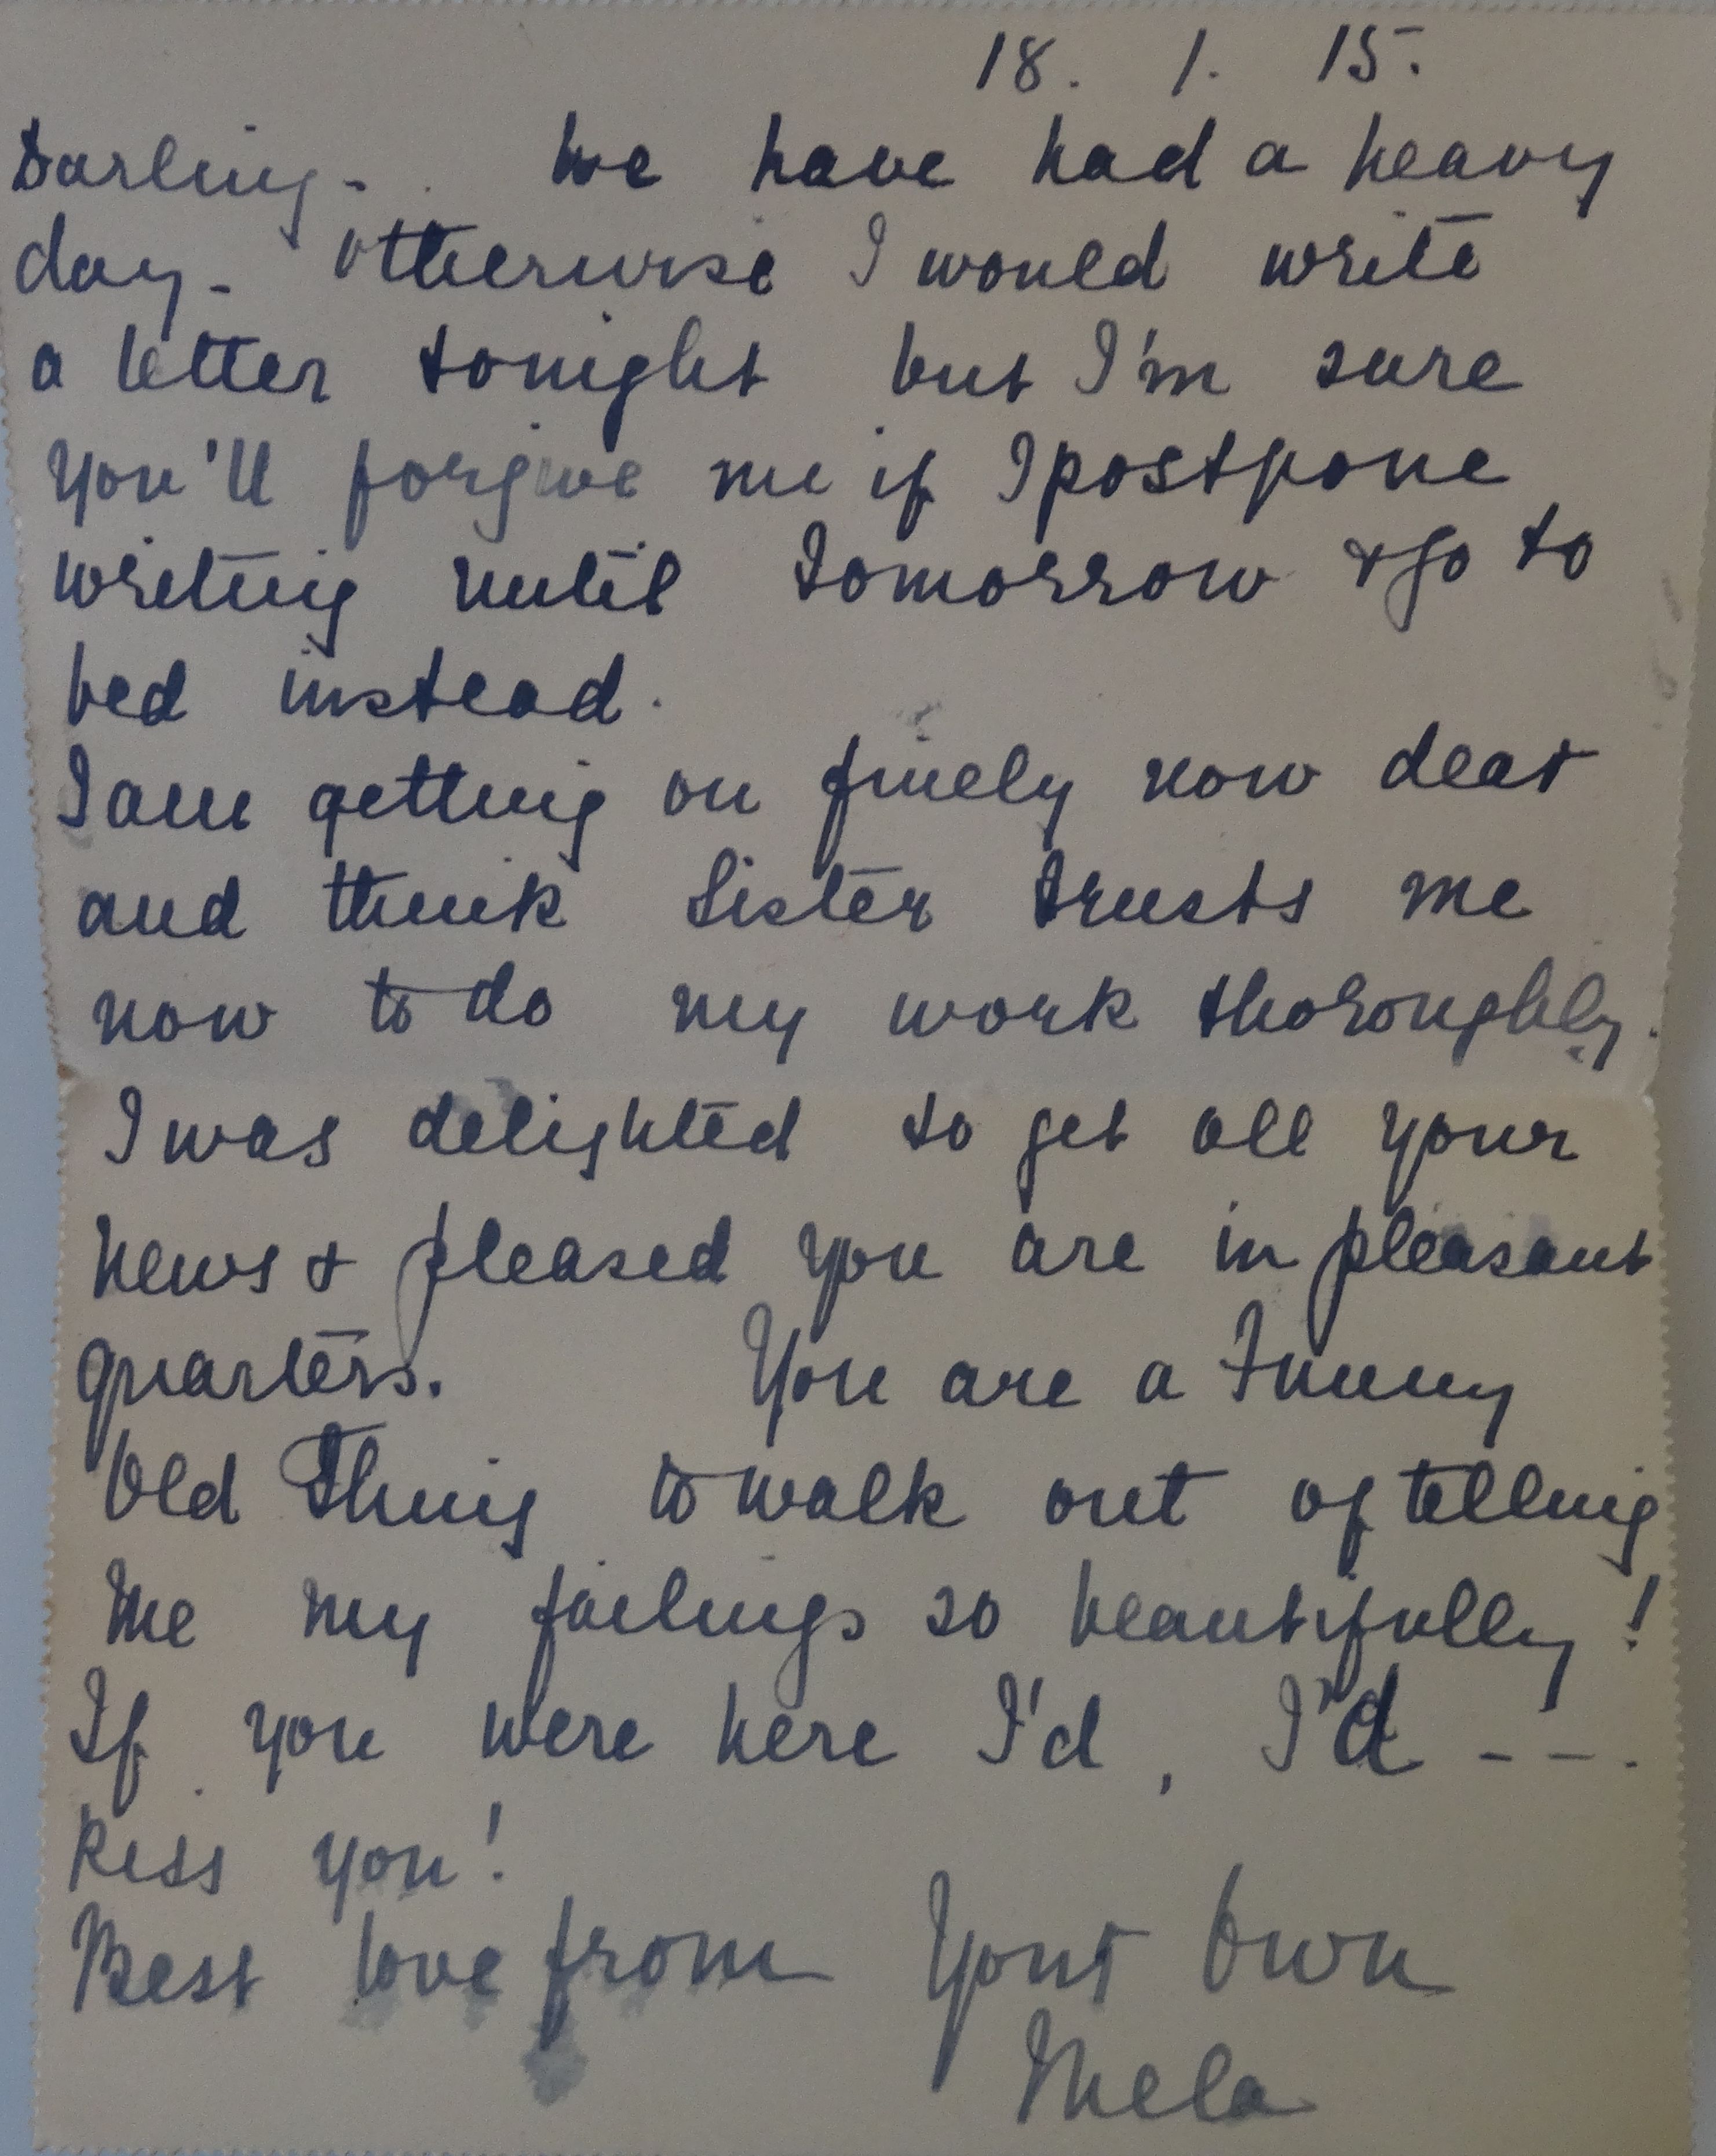 18. 1. 15.
Darling - . We have had a heavy
day - Otherwise I would write
a letter tonight but I'm sure
you'll forgive me if I postpone
writing until tomorrow & go to
bed instead.
I am getting on finely now dear
and think Sister trusts me
now to do my work thoroughly.
I was delighted to get all your
news & pleased you are in pleasant
quarters. You are a Funny
Old Thing to walk out of telling
me my failings so beautifully!
If you were here I'd, I'd - - .
Kiss you!
Best love from Your Own
Mela